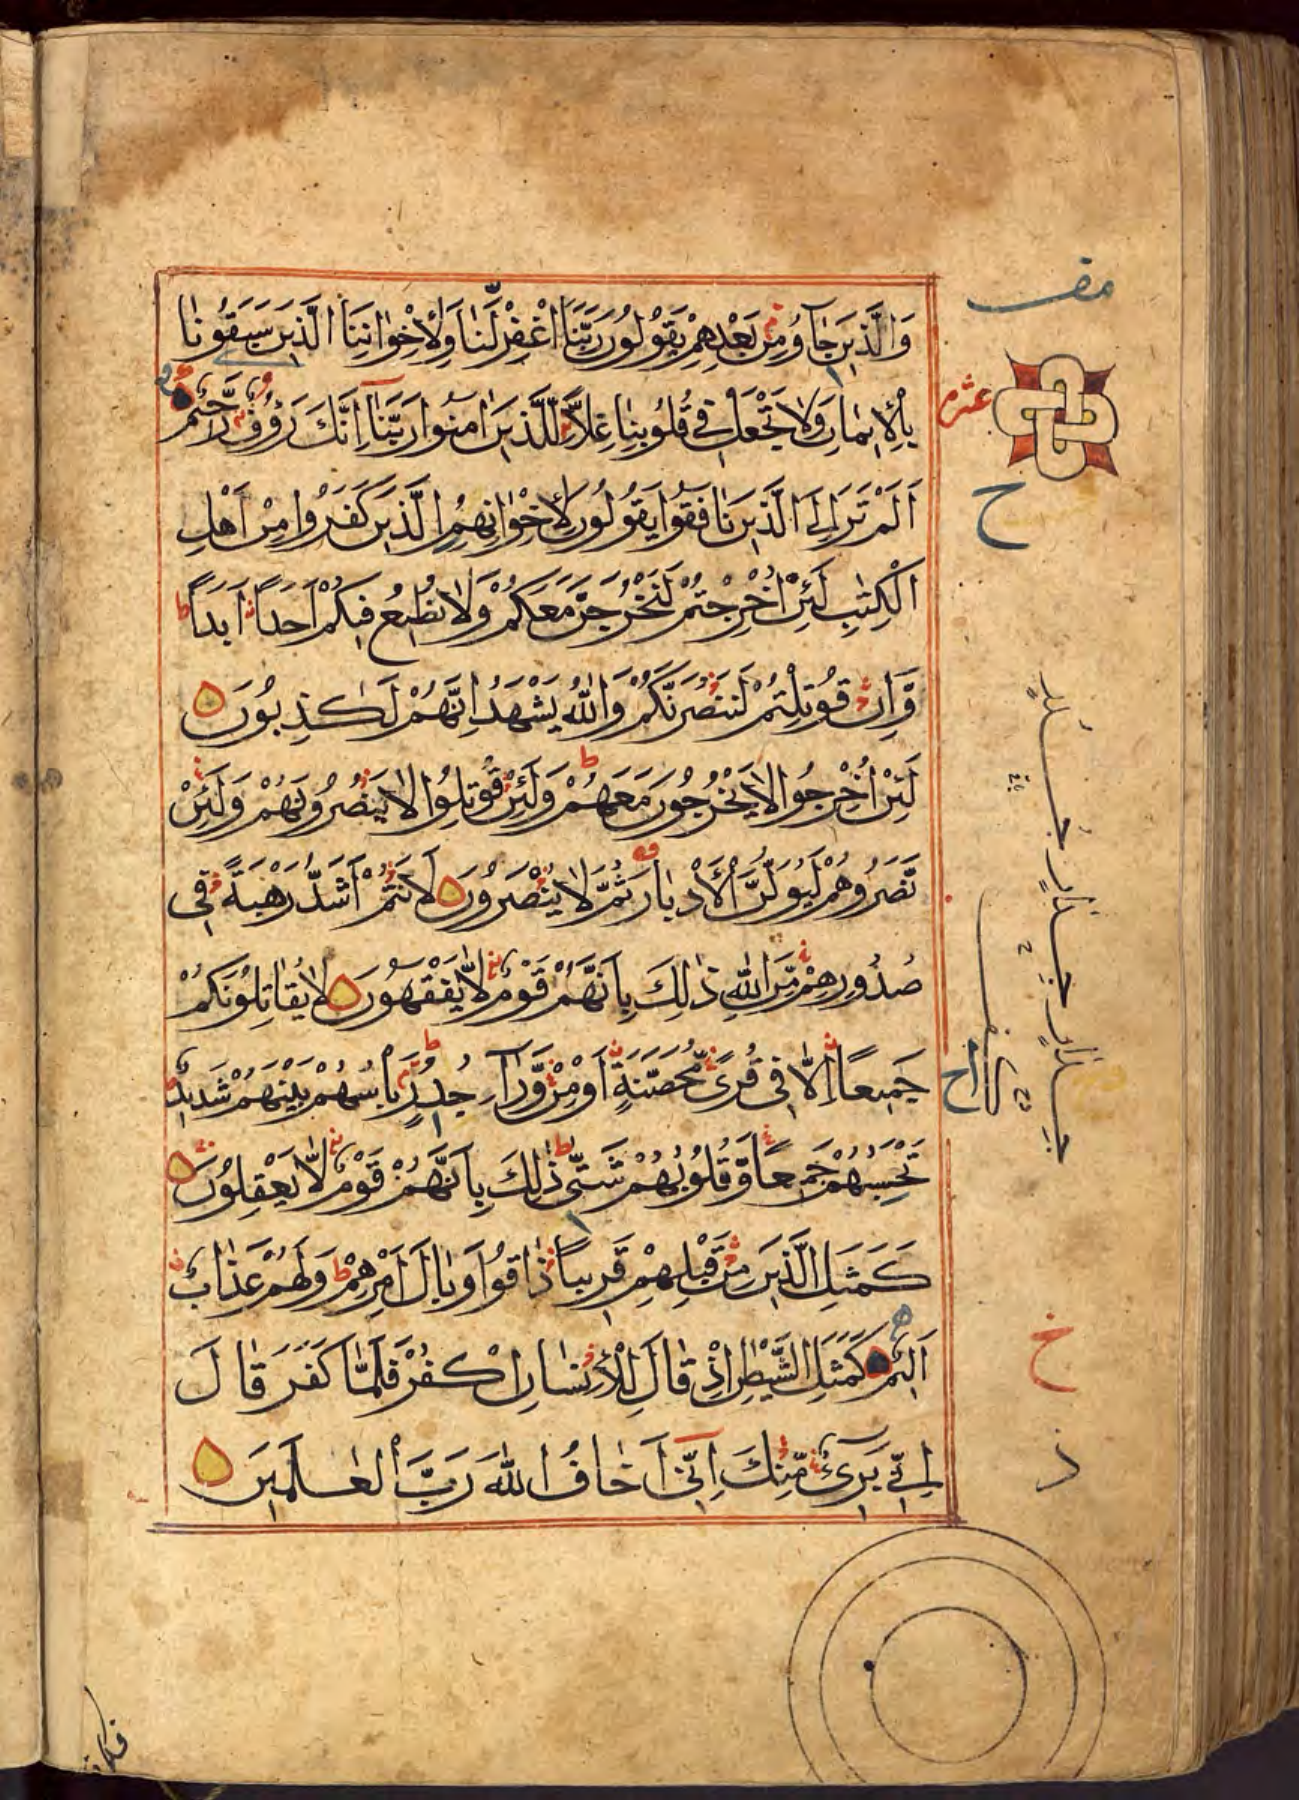 وَالَّذِينَ جَآؤُ مِنْ بَعْدِهِمْ يَقُولُونَ رَبَّنَا اغْفِرْ لَنَا وَلِإِخْوَانِنَا الَّذِينَ سَبَقُونَا
بِالْإِيمَانِ وَلَا تَجْعَلْ فِي قُلُوبِنَا غِلًّا لِلَّذِينَ اٰمَنُوا رَبَّنَآ اِنَّكَ رَؤُفٌ رَّحِيمٌ
اَلَمْ تَرَ اِلَى الَّذِينَ نَافَقُوا يَقُولُونَ لِإِخْوَانِهِمُ الَّذِينَ كَفَرُوا مِنْ اَهْلِ
الْكِتٰبِ لَئِنْ اُخْرِجْتُمْ لَنَخْرُجَنَّ مَعَكُمْ وَلَا نُطِيعُ فِيكُمْ اَحَدًا اَبَدًا
وَّاِنْ قُوتِلْتُمْ لَنَنْصُرَنَّكُمْ وَاللّٰهُ يَشْهَدُ اِنَّهُمْ لَكٰذِبُونَ
لَئِنْ اُخْرِجُوا لَا يَخْرُجُونَ مَعَهُمْ وَلَئِنْ قُوتِلُوا لَا يَنْصُرُونَهُمْ وَلَئِنْ
نَّصَرُوهُمْ لَيُوَلُّنَّ الْاَدْبَارَ ثُمَّ لَا يُنْصَرُونَ لَاَنْتُمْ اَشَدُّ رَهْبَةً فِي
صُدُورِهِمْ مِّنَ اللّٰهِ ذٰلِكَ بِاَنَّهُمْ قَوْمٌ لَّا يَفْقَهُونَ لَا يُقَاتِلُونَكُمْ
جَمِيعًا اِلَّا فِي قُرًى مُّحَصَّنَةٍ اَوْ مِنْ وَّرَآءِ جُدُرٍ بَاْسُهُمْ بَيْنَهُمْ شَدِيدٌ
تَحْسَبُهُمْ جَمِيعًا وَّقُلُوبُهُمْ شَتّٰى ذٰلِكَ بِاَنَّهُمْ قَوْمٌ لَّا يَعْقِلُونَ
كَمَثَلِ الَّذِينَ مِنْ قَبْلِهِمْ قَرِيبًا ذَاقُوا وَبَالَ اَمْرِهِمْ وَلَهُمْ عَذَابٌ
اَلِيمٌ كَمَثَلِ الشَّيْطٰنِ اِذْ قَالَ لِلْاِنْسَانِ اكْفُرْ فَلَمَّا كَفَرَ قَالَ
اِنِّي بَرِيٓءٌ مِّنْكَ اِنِّيٓ اَخَافُ اللّٰهَ رَبَّ الْعٰلَمِينَ
عشر
ح
ح
د